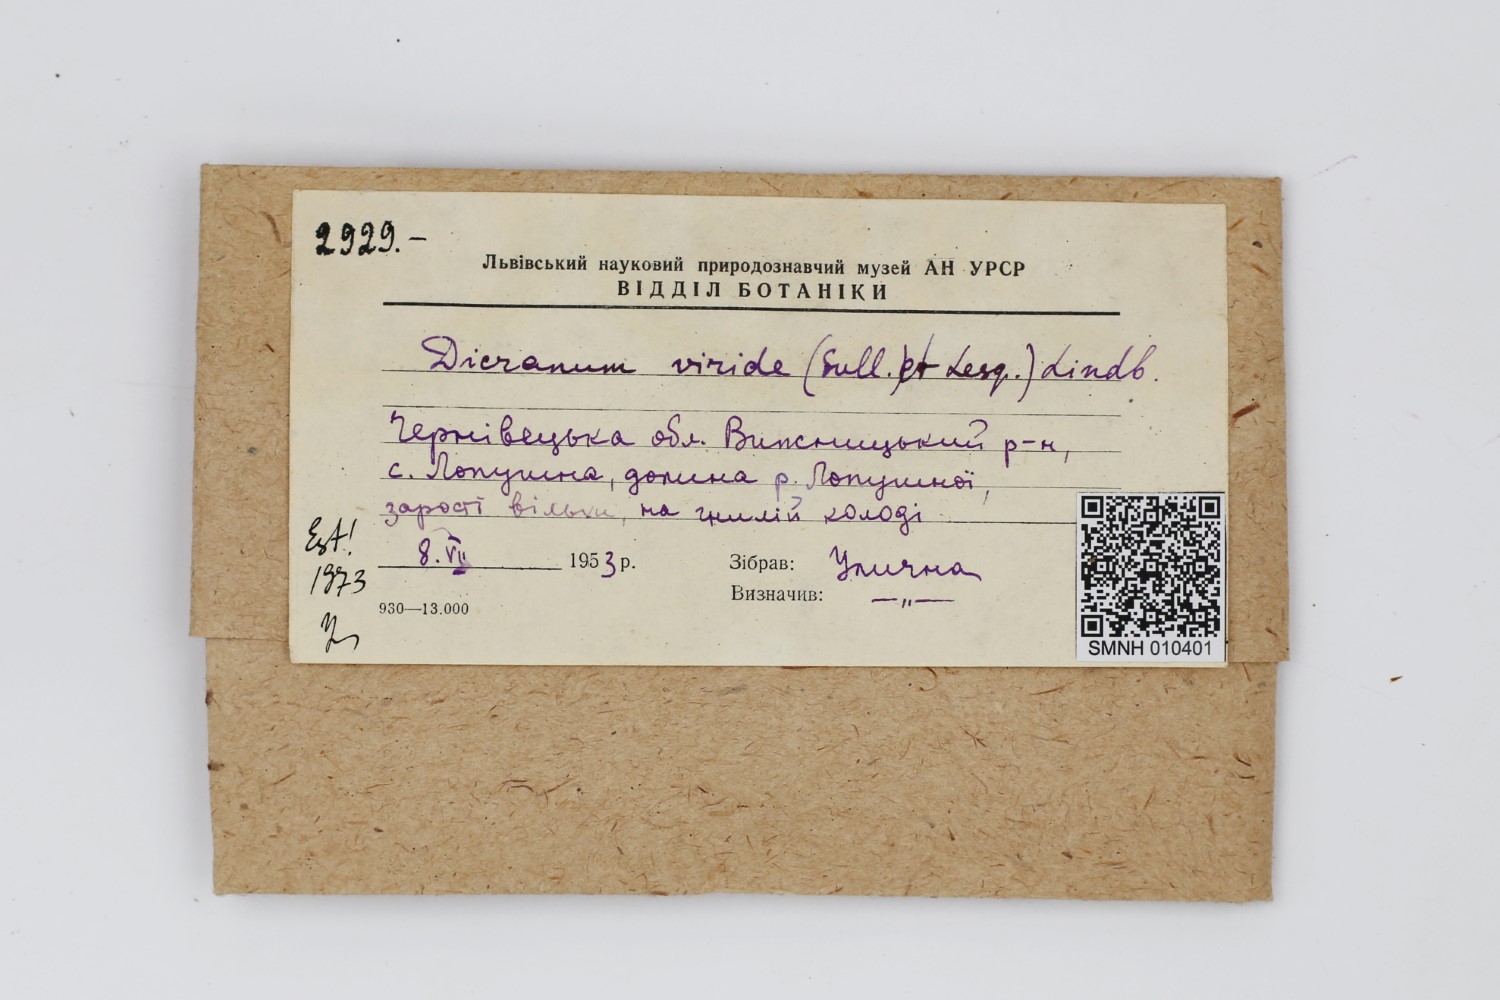 2929.—
Львівський науковий природознавчий музей АН УРСР
ВІДДІЛ БОТАНІКИ
Dicranum viride (Sull. et Lesq.) Lindb.
Чернівецька обл. Вижницький р-н,
с. Лопушна, долина р. Лопушної,
зарості вільхи, на гнилій колоді
Est!
1973
8. VII 1953 р.
Зібрав: Улична
Визначив: —„—
930—13.000
SMNH 010401